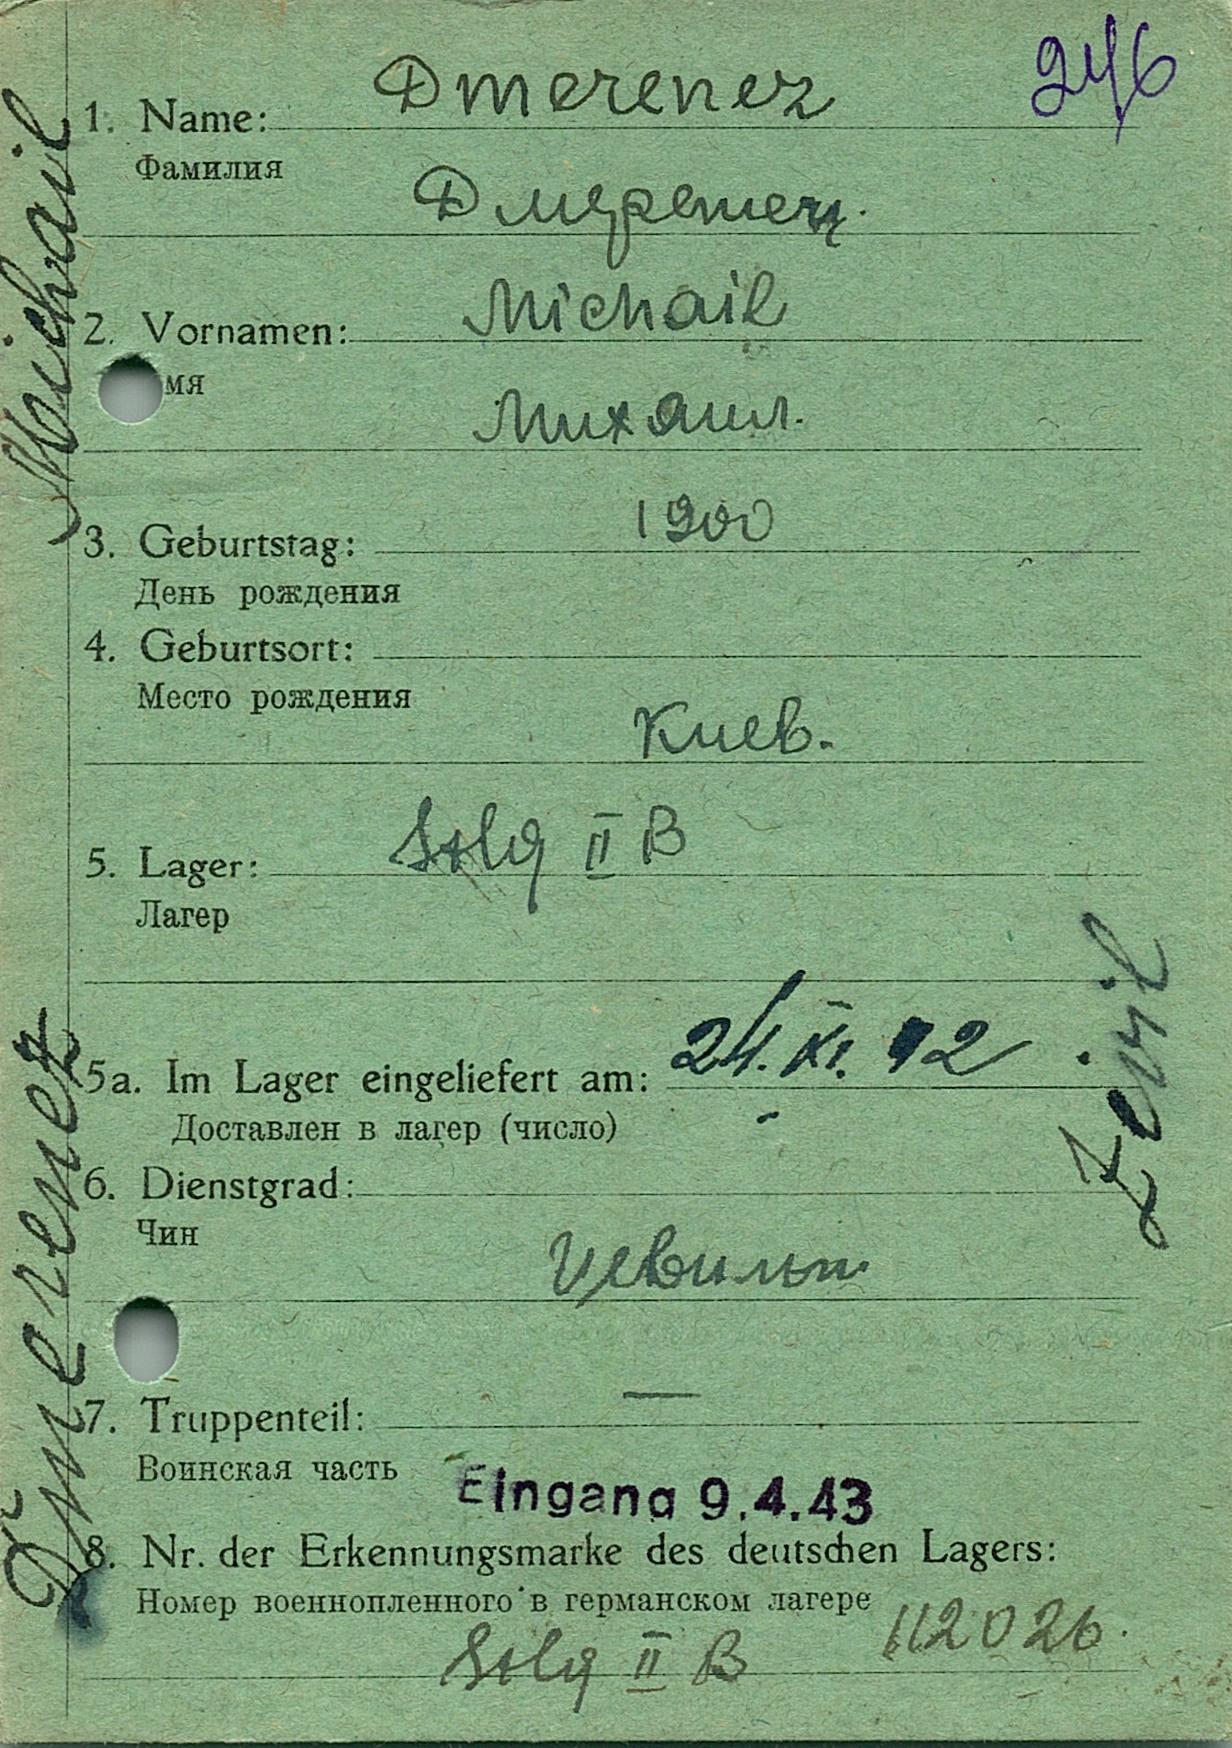 246
1. Name: Dmerenez
Фамилия
Дмеренец.
2. Vornamen: Michail
мя
Михаил.
3. Geburtstag: 1900
День рождения
4. Geburtsort:
Место рождения
Киев.
5. Lager: Stlg II B
Лагер
5a. Im Lager eingeliefert am: 24. XI. 42
Доставлен в лагер (число)
6. Dienstgrad:
Чин
Цевильн.
7. Truppenteil: —
Воинская часть
Eingang 9.4.43
8. Nr. der Erkennungsmarke des deutschen Lagers:
Номер военнопленного в германском лагере
Stlg II B 112026.
Dmerenez Michail
Zevil